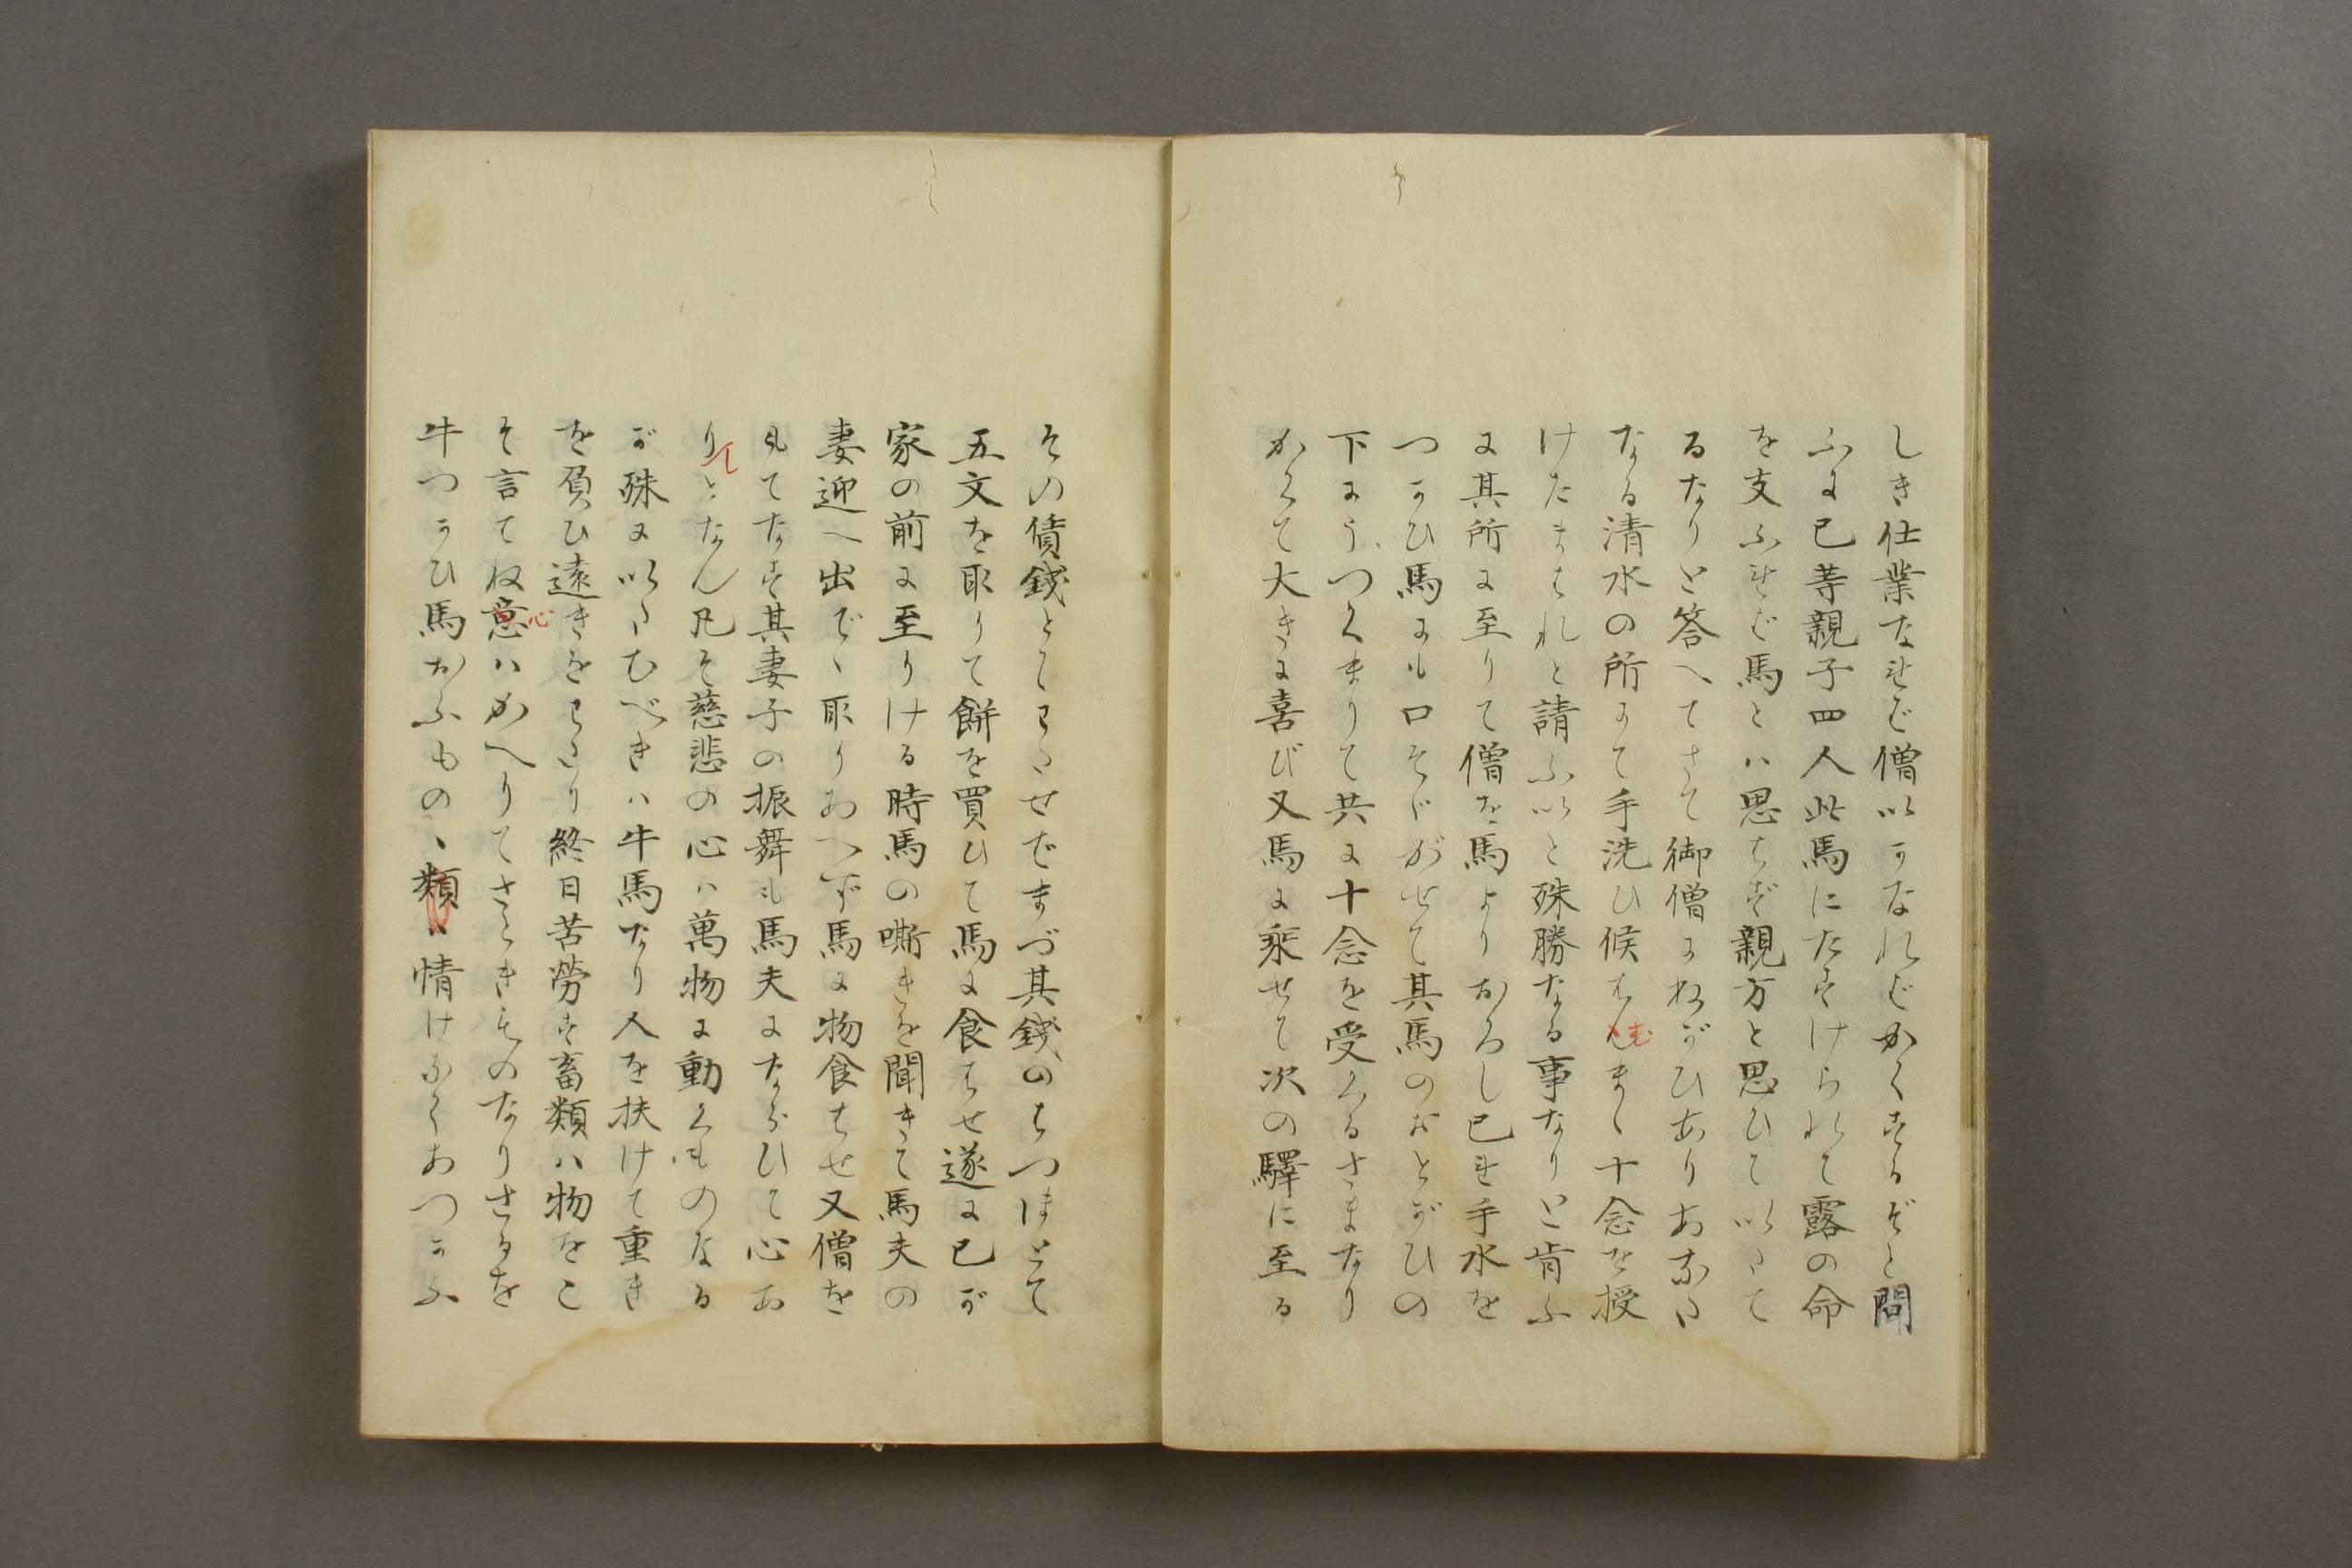 しき仕業なれど僧いかなれバかくするぞと問
ふに己等親子四人此馬にたすけられて露の命
を支ふれバ馬とハ思はず親方と思ひていたて
るなりと答へてさて御僧にねがひありあなた
なる清水の所にて手洗ひ候はんまゝ十念を授
けたまはれと請ふいと殊勝なる事なりと肯ふ
に其所に至りて僧を馬よりおろし己れ手水を
つかひ馬にも口そゝがせて其馬のおとがひの
下にうづくまりて共に十念を受くるさまなり
かくて大きに喜び又馬に乗せて次の驛に至る
その債銭としてわたせバまづ其銭のはつほとて
五文を取りて餅を買ひて馬に食はせ遂に己が
家の前に至りける時馬の嘶きを聞きて馬夫の
妻迎へ出でゝ取りあへず馬に物食はせ又僧を
もてなす其妻子の振舞も馬夫にならひて心あ
りしとなん凡そ慈悲の心ハ萬物に動くものなる
が殊にいたむべきハ牛馬なり人を扶けて重き
を負ひ遠きをわたり終日苦労す畜類ハ物をこ
そ言てね意心ハかへりてさときものなりさるを
牛つかひ馬おふものゝ類ハ情けなくあつかふ